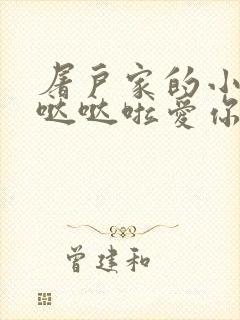 屠户家的小
哒哒啦爱你
曾建和